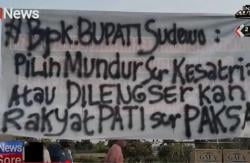 iNews
# Bpk. BUPATI Sudewo :
Pilih Mundur Scr Kesatria
Atau DILENGSERKAN
Rakyat PATI scr PAKSA
iNews
Sore